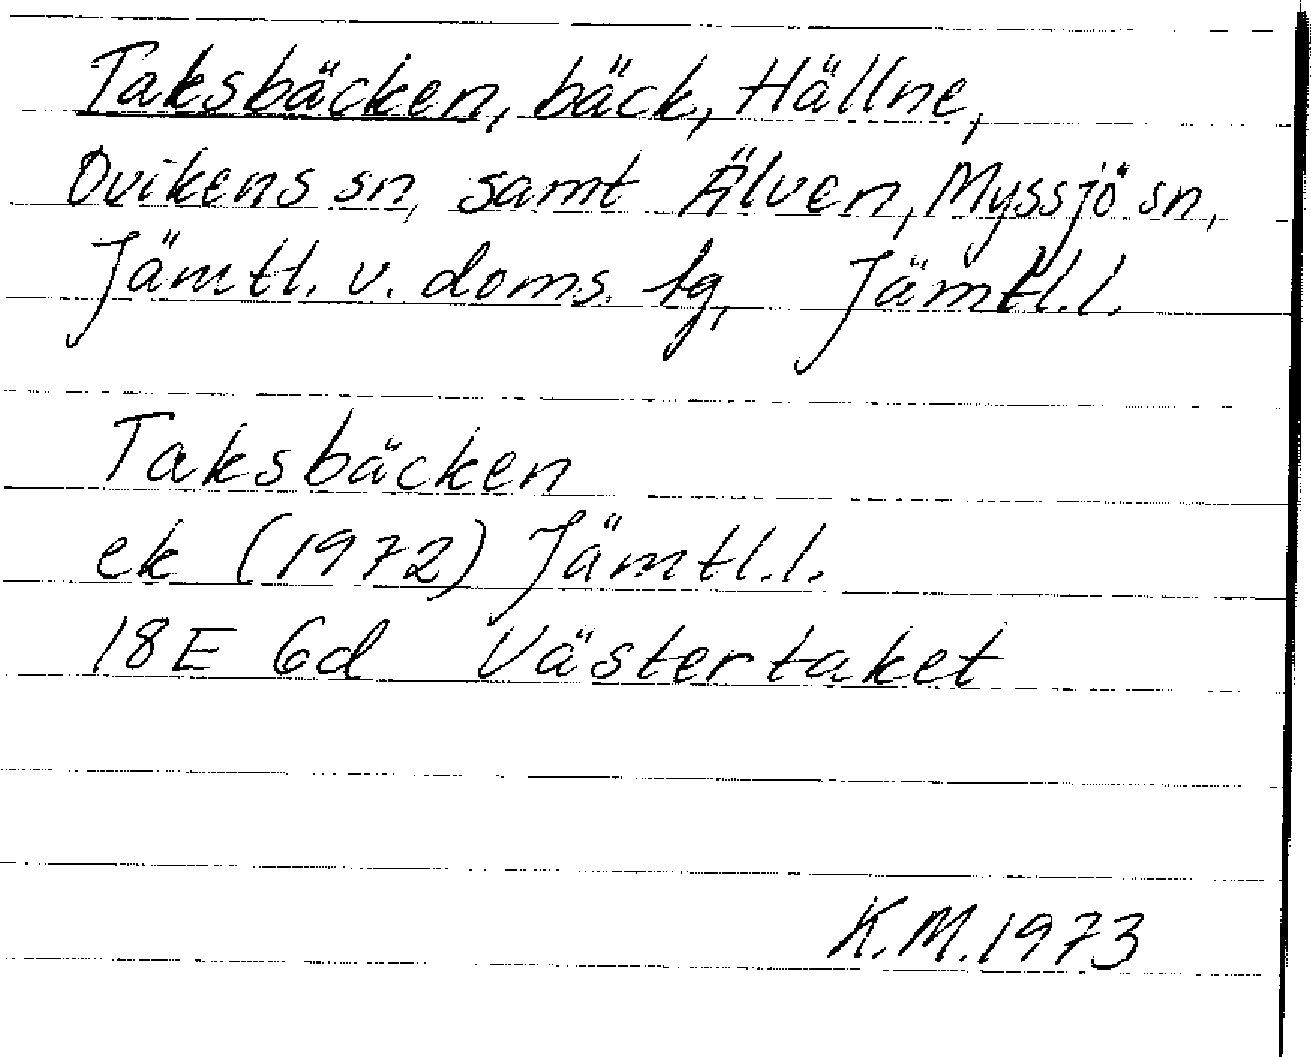 Taksbäcken, bäck, Hällne,
Ovikens sn, samt Älven, Myssjö sn,
Jämtl. v. doms. tg, Jämtl.l.
Taksbäcken
ek (1972) Jämtl.l.
18E 6d Västertaket
K.M.1973